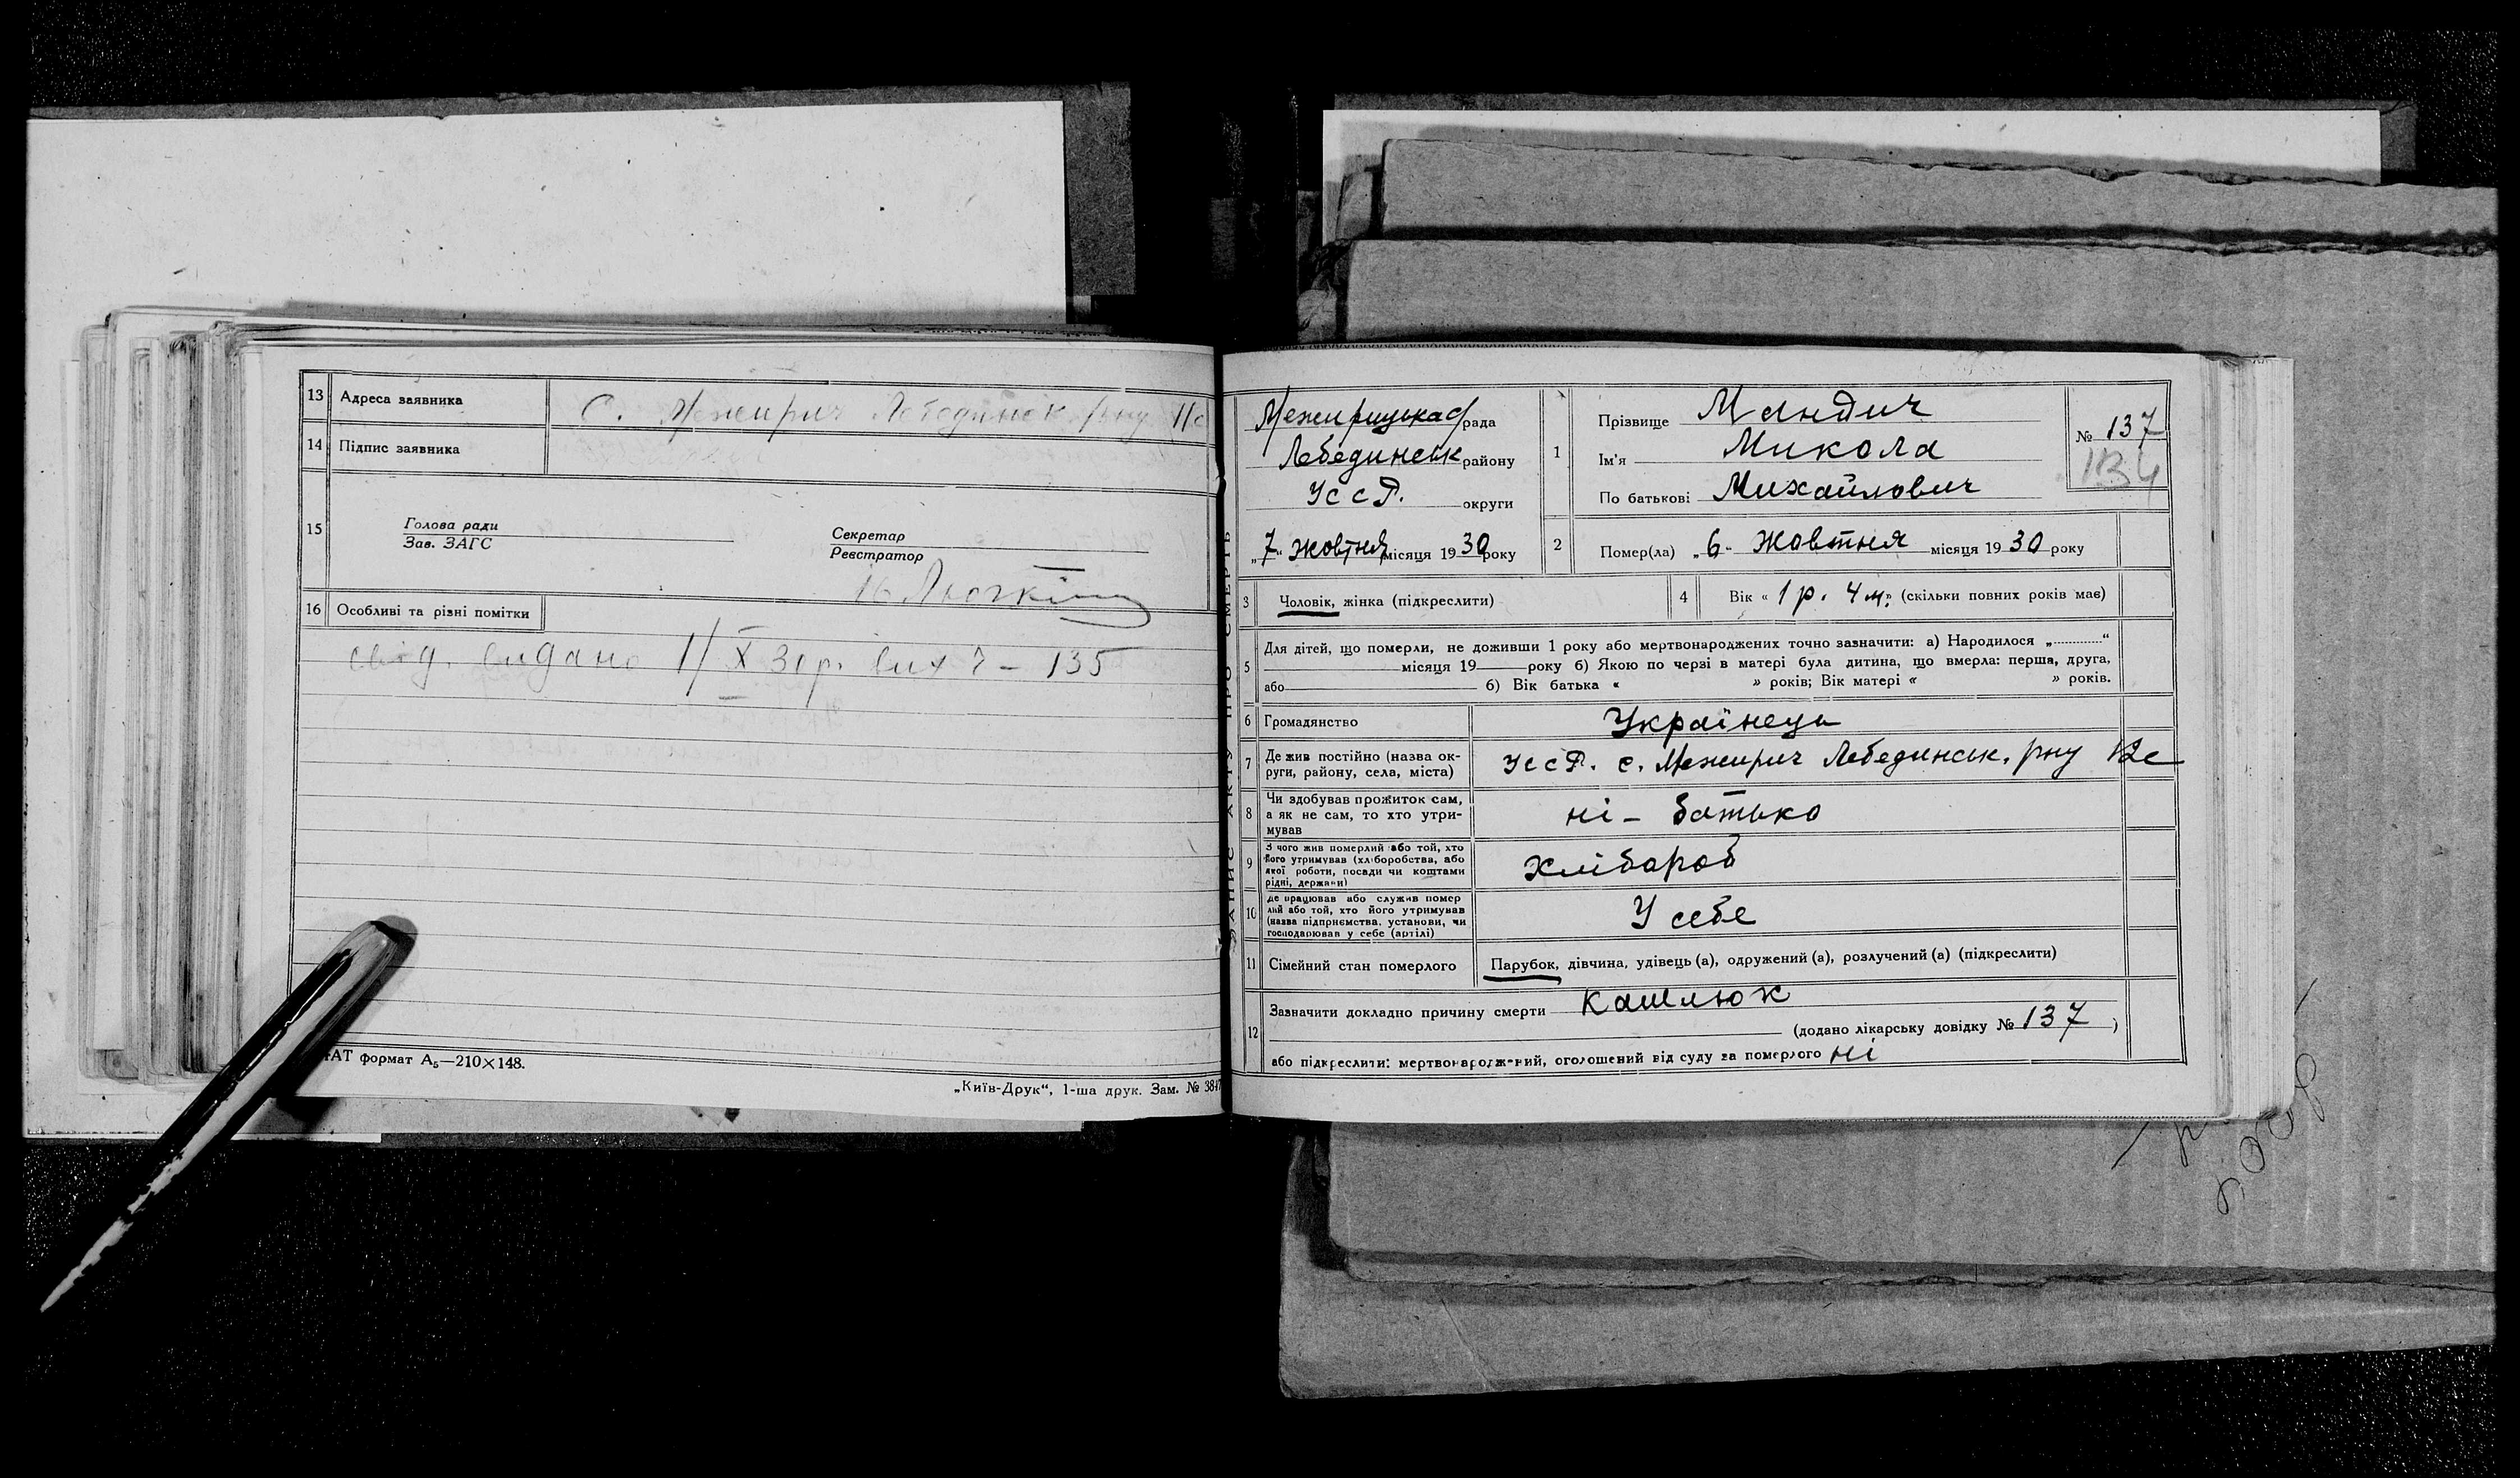 13 Адреса заявника С. Межирич Лебединськ рну 11с
14 Підпис заявника
15 Голова ради
Зав. ЗАГС
Секретар
Реєстратор
16 Особливі та різні помітки
свід. видано 1/X 30р. вих – 135
формат А₅—210×148.
„Київ-Друк“, 1-ша друк. Зам. №
ЗАПИС АКТУ ПРО СМЕРТЬ
Межирицька с/рада
Лебединськ району
УССР. округи
„7“ жовтня місяця 1930 року
1 Прізвище Мандич
Ім'я Микола
По батькові Михайлович
№ 137
134
2 Помер(ла) „6“ жовтня місяця 1930 року
3 Чоловік, жінка (підкреслити)
4 Вік «1 р. 4 м.» (скільки повних років має)
5 Для дітей, що померли, не доживши 1 року або мертвонароджених точно зазначити: а) Народилося „............“
місяця 19 року б) Якою по черзі в матері була дитина, що вмерла: перша, друга,
або б) Вік батька « » років; Вік матері « » років.
6 Громадянство Українець
7 Де жив постійно (назва ок-
руги, району, села, міста) УССР. с. Межирич Лебединськ. рну 12с
8 Чи здобував прожиток сам,
а як не сам, то хто утри-
мував ні – батько
9 З чого жив померлий або той, хто
його утримував (хліборобства, або
якої роботи, посади чи коштами
рідні, держави) Хлібароб
10 Де працював або служив помер
лий або той, хто його утримував
(назва підприємства, установи, чи
господарював у себе (артілі) У себе
11 Сімейний стан померлого Парубок, дівчина, удівець (а), одружений (а), розлучений (а) (підкреслити)
12 Зазначити докладно причину смерти Кашлюк
(додано лікарську довідку № 137 )
або підкреслити: мертвонароджений, оголошений від суду за померлого ні